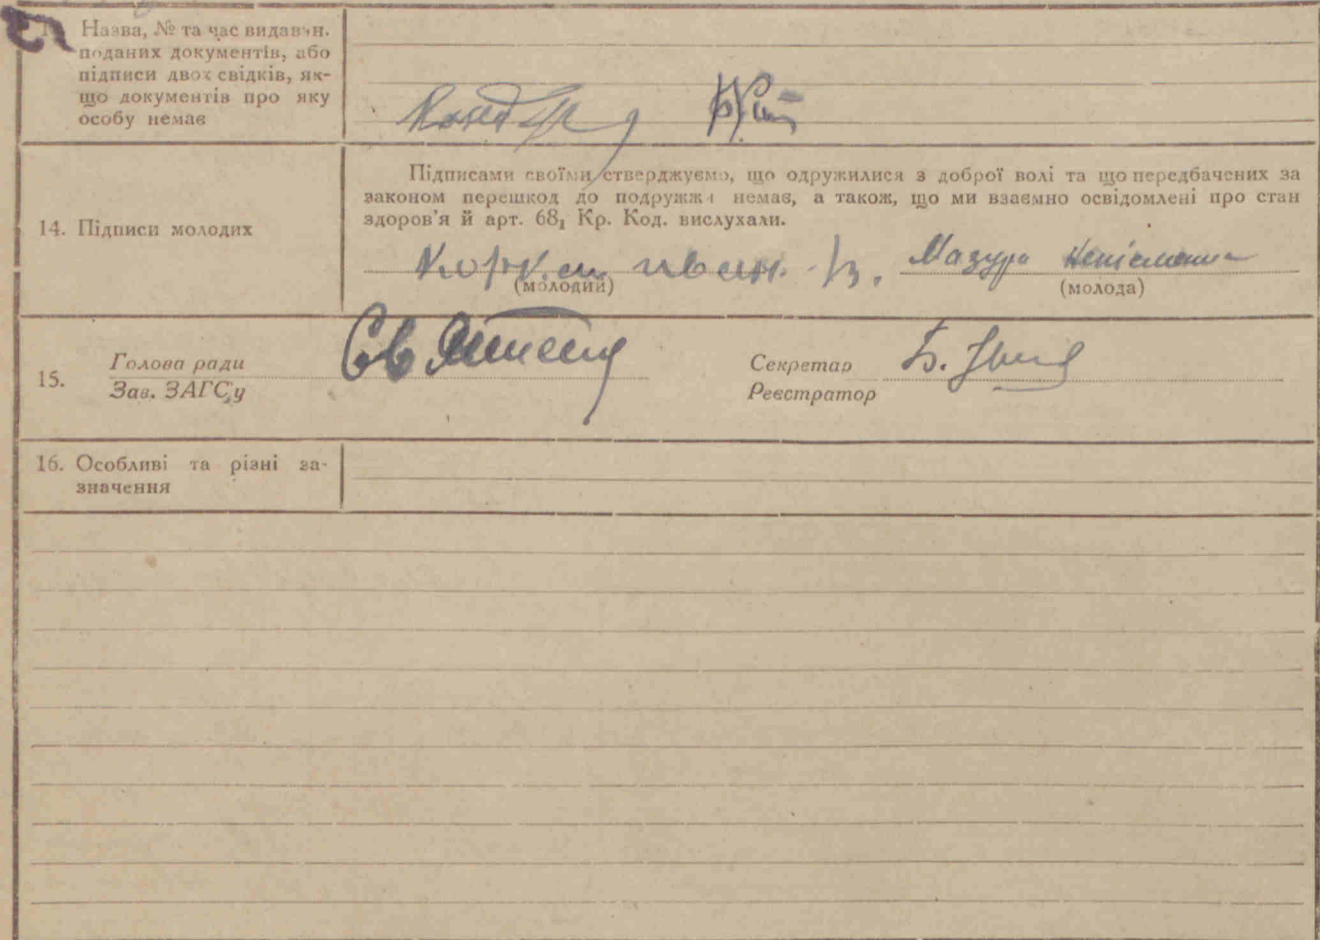 Назва, № та час видавн.
поданих документів, або
підписи двох свідків, як-
що документів про яку
особу немає
14. Підписи молодих
Підписами своїми стверджуємо, що одружилися з доброї волі та що передбачених за
законом перешкод до подружжя немає, а також, що ми взаємно освідомлені про стан
здоров'я й арт. 68₁ Кр. Код. вислухали.
Мазура
(молодий) (молода)
15. Голова ради
Зав. ЗАГС'у
Секретар Б.
Реєстратор
16. Особливі та різні за-
значення